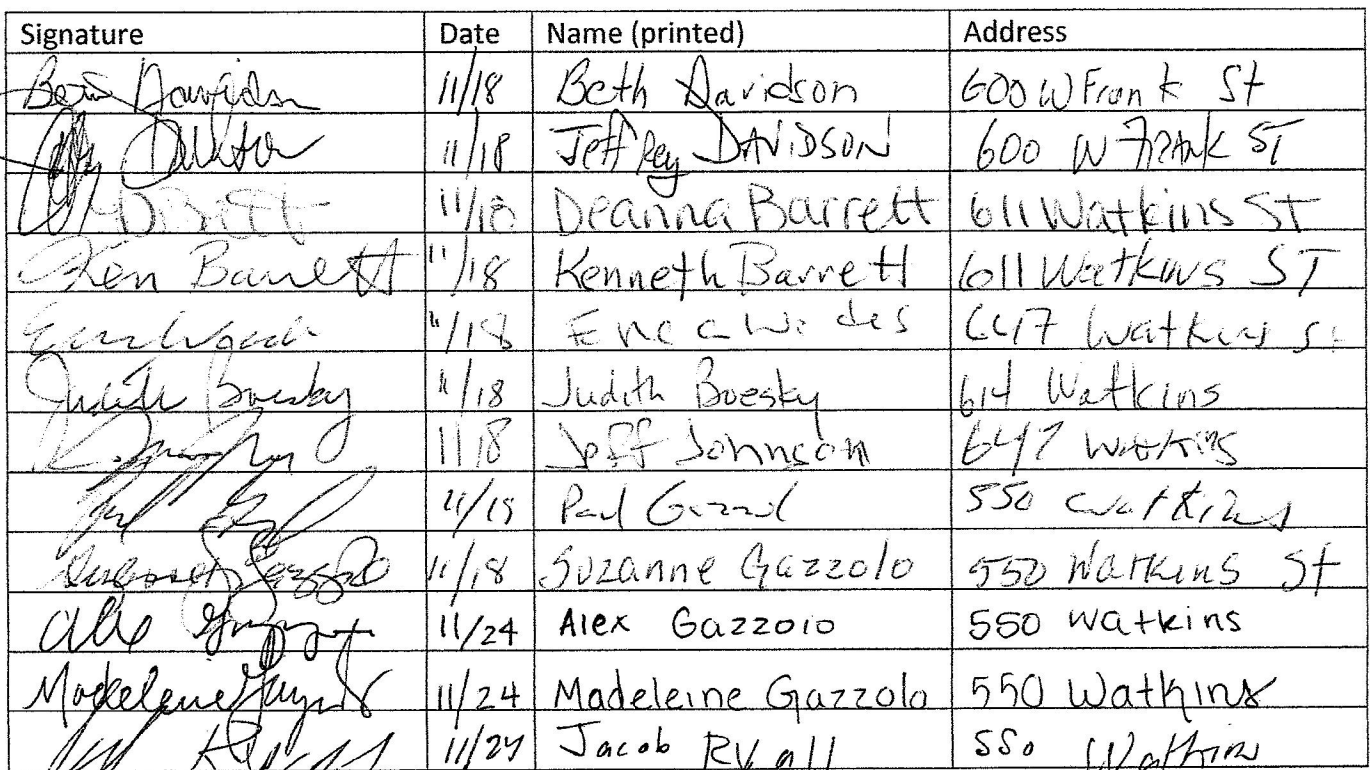 Signature Date Name (printed) Address
Beth Davidson 11/18 Beth Davidson 600 W Frank St
11/18 Jeffrey DAVIDSON 600 W FRANK ST
11/18 Deanna Barrett 611 Watkins ST
Ken Barrett 11/18 Kenneth Barrett 611 Watkins ST
11/18 647 Watkins St
Judith Boesky 11/18 Judith Boesky 614 Watkins
11/18 Jeff Johnson 647 Watkins
11/18 Paul 550 Watkins
Suzanne Gazzolo 11/18 Suzanne Gazzolo 550 Watkins St
Alex 11/24 Alex Gazzolo 550 Watkins
Madeleine 11/24 Madeleine Gazzolo 550 Watkins
11/24 Jacob Ryall 550 Watkins